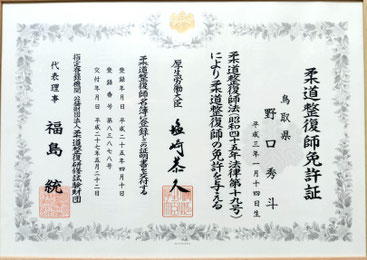 柔道整復師免許証
鳥取県
野口秀斗
平成三年一月十四日生
柔道整復師法(昭和四十五年法律第十九号)
により柔道整復師の免許を与える
厚生労働大臣
塩崎恭久
柔道整復師名簿に登録したとの証明書を交付する
登録年月日 平成二十五年四月十日
登録番号 第八三八七八号
交付年月日 平成二十七年五月二十二日
指定登録機関 公益財団法人柔道整復研修試験財団
代表理事 福島統